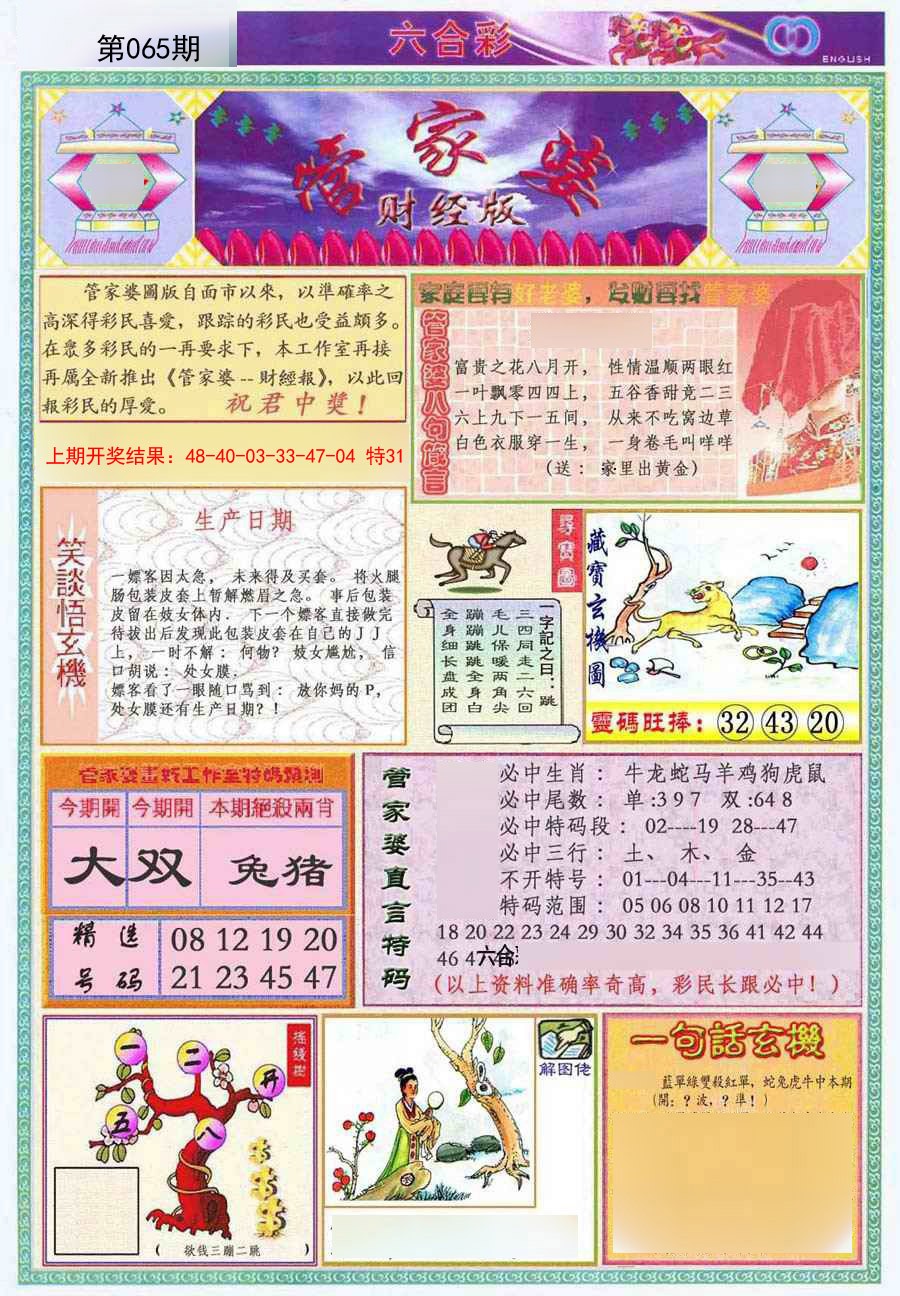 第065期
六合彩
ENGLISH
管家婆
财经版
管家婆圖版自面市以來，以準確率之
高深得彩民喜愛，跟踪的彩民也受益頗多。
在眾多彩民的一再要求下，本工作室再接
再厲全新推出《管家婆--財經報》，以此回
報彩民的厚愛。 祝君中獎！
上期开奖结果：48-40-03-33-47-04 特31
家庭要有好老婆，发财要找管家婆
管家婆八句箴言
富贵之花八月开， 性情温顺两眼红
一叶飘零四四上， 五谷香甜竞二三
六上九下一五间， 从来不吃窝边草
白色衣服穿一生， 一身卷毛叫咩咩
（送：家里出黄金）
笑談悟玄機
生产日期
一嫖客因太急， 未来得及买套。 将火腿
肠包装皮套上暂解燃眉之急。 事后包装
皮留在妓女体内． 下一个嫖客直接做完
待拔出后发现此包装皮套在自己的ＪＪ
上， 一时不解： 何物？ 妓女尴尬， 信
口胡说： 处女膜．
嫖客看了一眼随口骂到： 放你妈的Ｐ，
处女膜还有生产日期？！
尋寶圖
一字記之曰：跳
三四同走二六回
毛儿保暖两角尖
蹦蹦跳跳全身白
全身细长盘成团
藏寶玄機圖
靈碼旺捧：32 43 20
管家婆畫戰工作室特碼預測
今期開 今期開 本期絕殺兩肖
大 双 兔猪
精选号码
08 12 19 20
21 23 45 47
管家婆直言特码
必中生肖： 牛龙蛇马羊鸡狗虎鼠
必中尾数： 单:3 9 7 双:64 8
必中特码段： 02----19 28---47
必中三行： 土、 木、 金
不开特号： 01---04---11---35--43
特码范围： 05 06 08 10 11 12 17
18 20 22 23 24 29 30 32 34 35 36 41 42 44
46 4
六合
（以上资料准确率奇高，彩民长跟必中！）
搖錢樹
一
二
开
五
八
（ 欲钱三蹦二跳 ）
解图佬
一句話玄機
藍單綠雙殺紅單，蛇兔虎牛中本期
（開：？波，？準！）